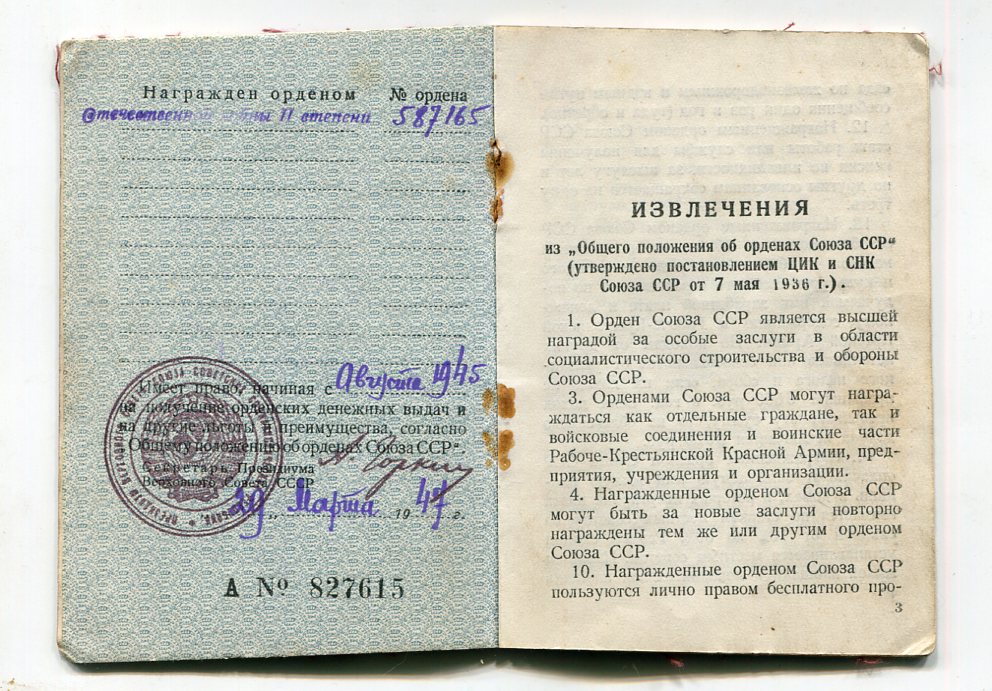 Награжден орденом
№ ордена
Отечественной войны II степени
587165
Имеет право, начиная с Августа 1945
на получение орденских денежных выдач и
на другие льготы и преимущества, согласно
„Общему положению об орденах Союза ССР“.
Секретарь Президиума
Верховного Совета СССР
А Горкин
29 „ Марта 1947 г.
А № 827615
ИЗВЛЕЧЕНИЯ
из „Общего положения об орденах Союза ССР“
(утверждено постановлением ЦИК и СНК
Союза ССР от 7 мая 1936 г.).
1. Орден Союза ССР является высшей
наградой за особые заслуги в области
социалистического строительства и обороны
Союза ССР.
3. Орденами Союза ССР могут награ-
ждаться как отдельные граждане, так и
войсковые соединения и воинские части
Рабоче-Крестьянской Красной Армии, пред-
приятия, учреждения и организации.
4. Награжденные орденом Союза ССР
могут быть за новые заслуги повторно
награждены тем же или другим орденом
Союза ССР.
10. Награжденные орденом Союза ССР
пользуются лично правом бесплатного про-
3